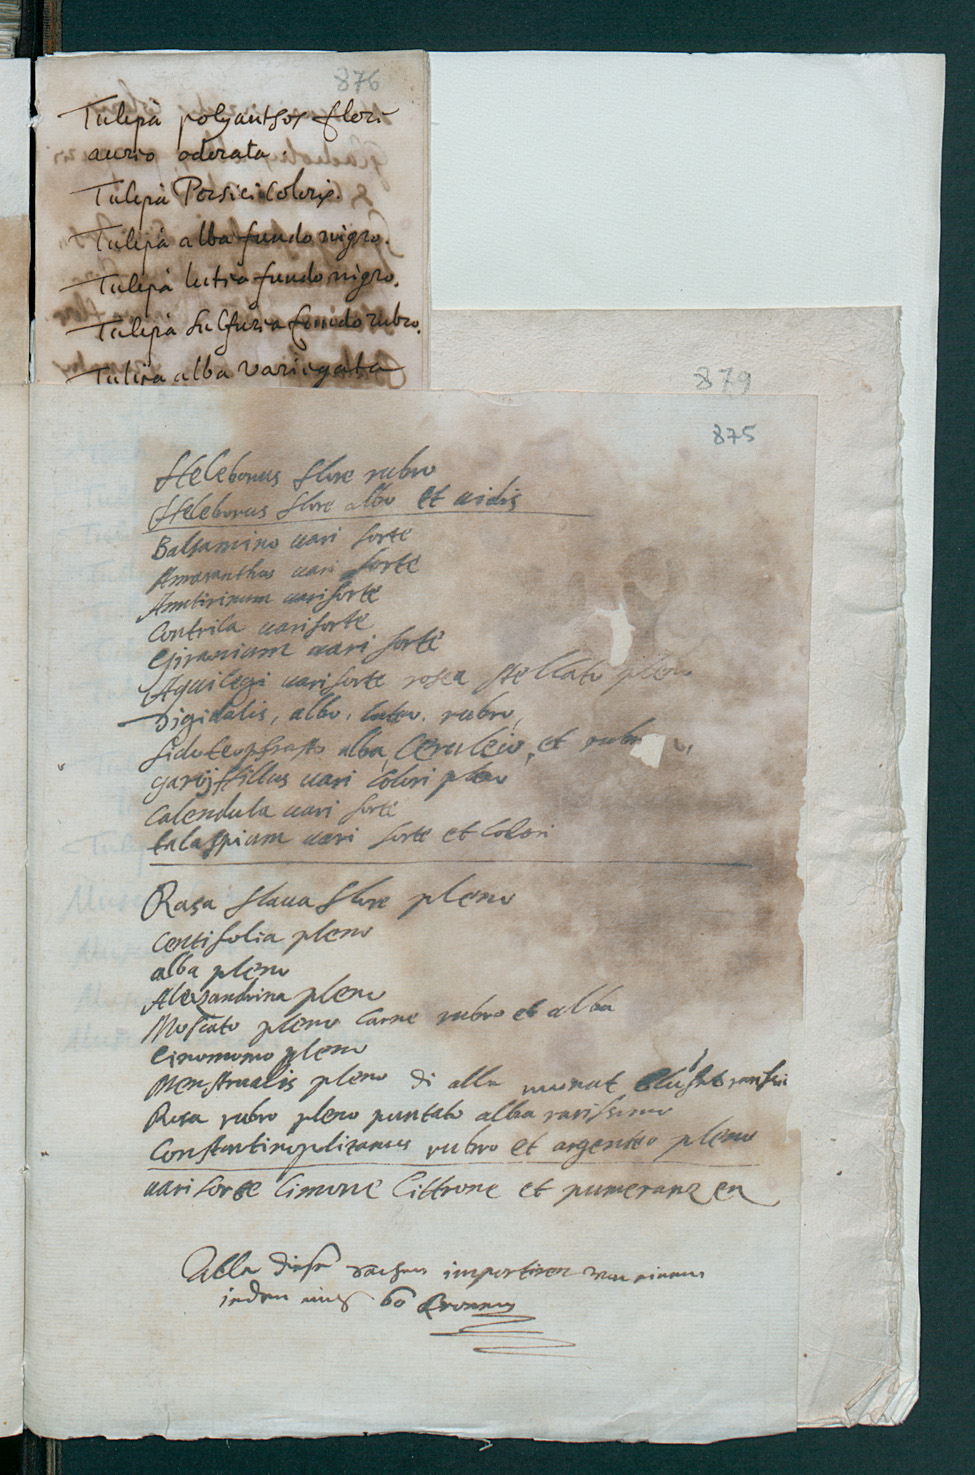 876
Tulipa polyanthos flore
aureo odorata.
Tulipa Persici Coloris.
Tulipa alba fundo nigro.
Tulipa lutea fundo nigro.
Tulipa Sulfurea fundo rubro.
Tulipa alba variegata
879
875
Heleborus flore rubro
Heleborus flore albo et uidis
Balsamino uari forte
Amaranthus uari forte
Anntirinum uari forte
Contrila uari forte
Giranium uari forte
Aquilegi uari forte rosea stellato pleno
Digidalis, albo, luteo, rubro,
alba, Ceruleio, et rubro
garioffillus uari Colori pleno
Calendula uari forte
talaspium uari forte et Colori
Rosa flaua flore pleno
Centifolia pleno
alba pleno
Alexandrina pleno
Moscato pleno Carne rubro et alba
Cinomomo pleno
Menstrualis pleno di alle monat
Rosa rubro pleno puntato alba rarissimo
Constantinoplitanus rubro et argenteo pleno
uari forte Limone Cittrone et pumeranzen
Alla diese sachen importiren
60 Cronnen